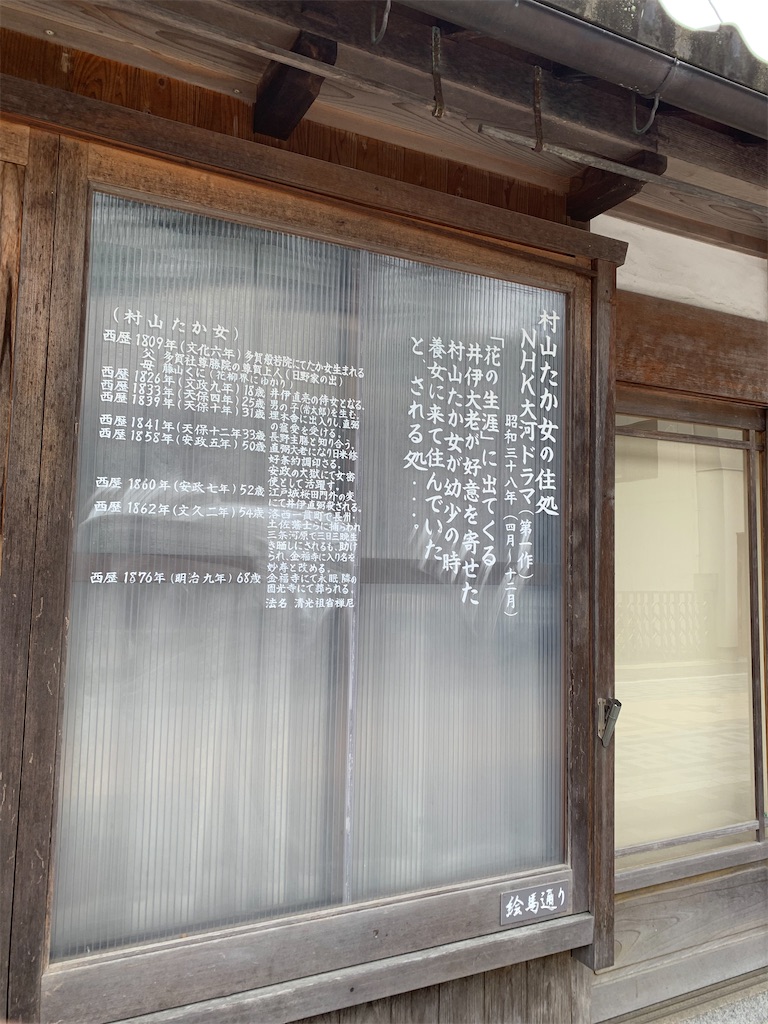 村山たか女の住処
NHK大河ドラマ(第一作)
昭和三十八年(四月〜十二月)
「花の生涯」に出てくる
井伊大老が好意を寄せた
村山たか女が幼少の時
養女に来て住んでいた
と、される処....。
(村山たか女)
西歴 1809年(文化六年)多賀般若院にてたか女生まれる
父 多賀社尊勝院の尊賀上人(日野家の出)
母 藤山くに(花柳界にゆかり)
西歴 1826年(文政九年)18歳 井伊直亮の侍女となる、
西歴 1833年(天保四年)25歳 男の子(常太郎)を生む、
西歴 1839年(天保十年)31歳 埋木舎に出入りし、直弼
の寵愛を受ける。
西歴 1841年(天保十二年)33歳 長野主膳と知り合う、
西歴 1858年(安政五年)50歳 直弼大老になり日米修
好条約調印さる。
安政の大獄にて女密
使として活躍す。
西歴 1860年(安政七年)52歳 江戸城桜田門外の変
にて井伊直弼殺される。
西歴 1862年(文久二年)54歳 洛西一貫町で長州・
土佐藩士らに捕らわれ
三条河原で三日三晩生
き晒しにされるも、助け
られ、金福寺に入り名を
妙寿と改める。
西歴 1876年(明治九年)68歳 金福寺にて永眠 隣の
圓光寺にて葬られる。
法名 清光祖省禅尼
絵馬通り